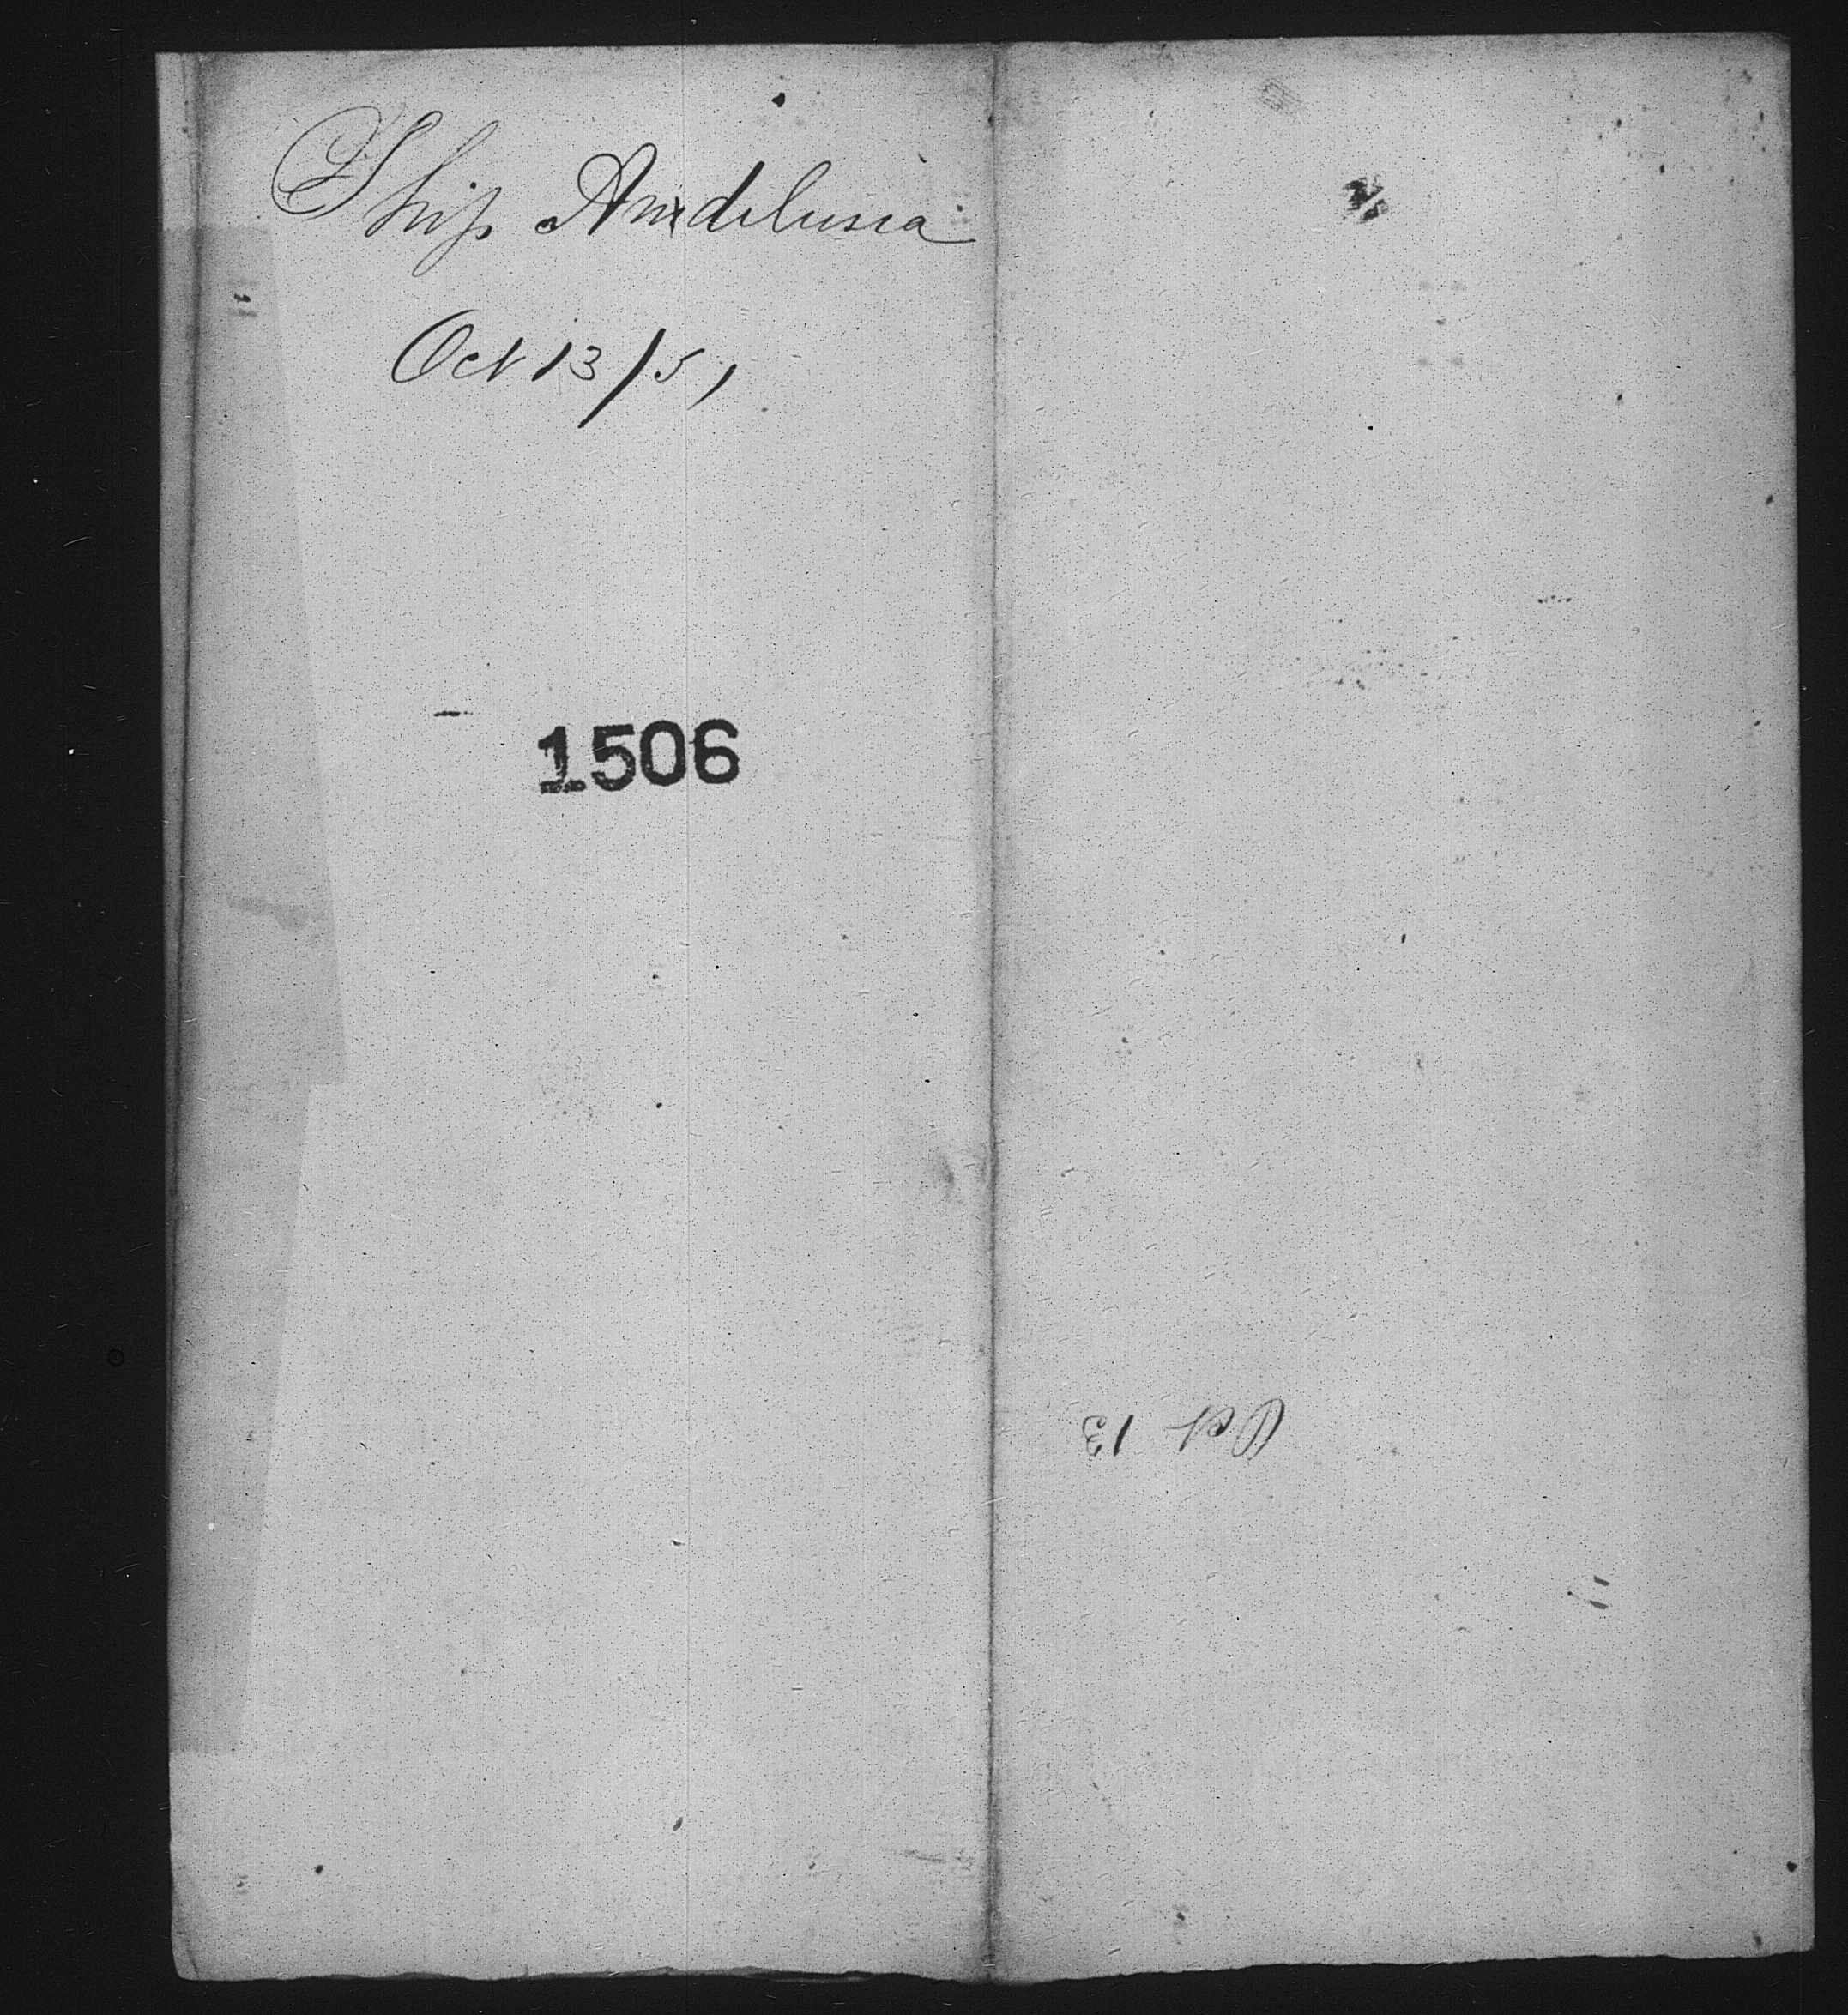 Ship Andelusia
Oct 13/51
1506
Oct 13